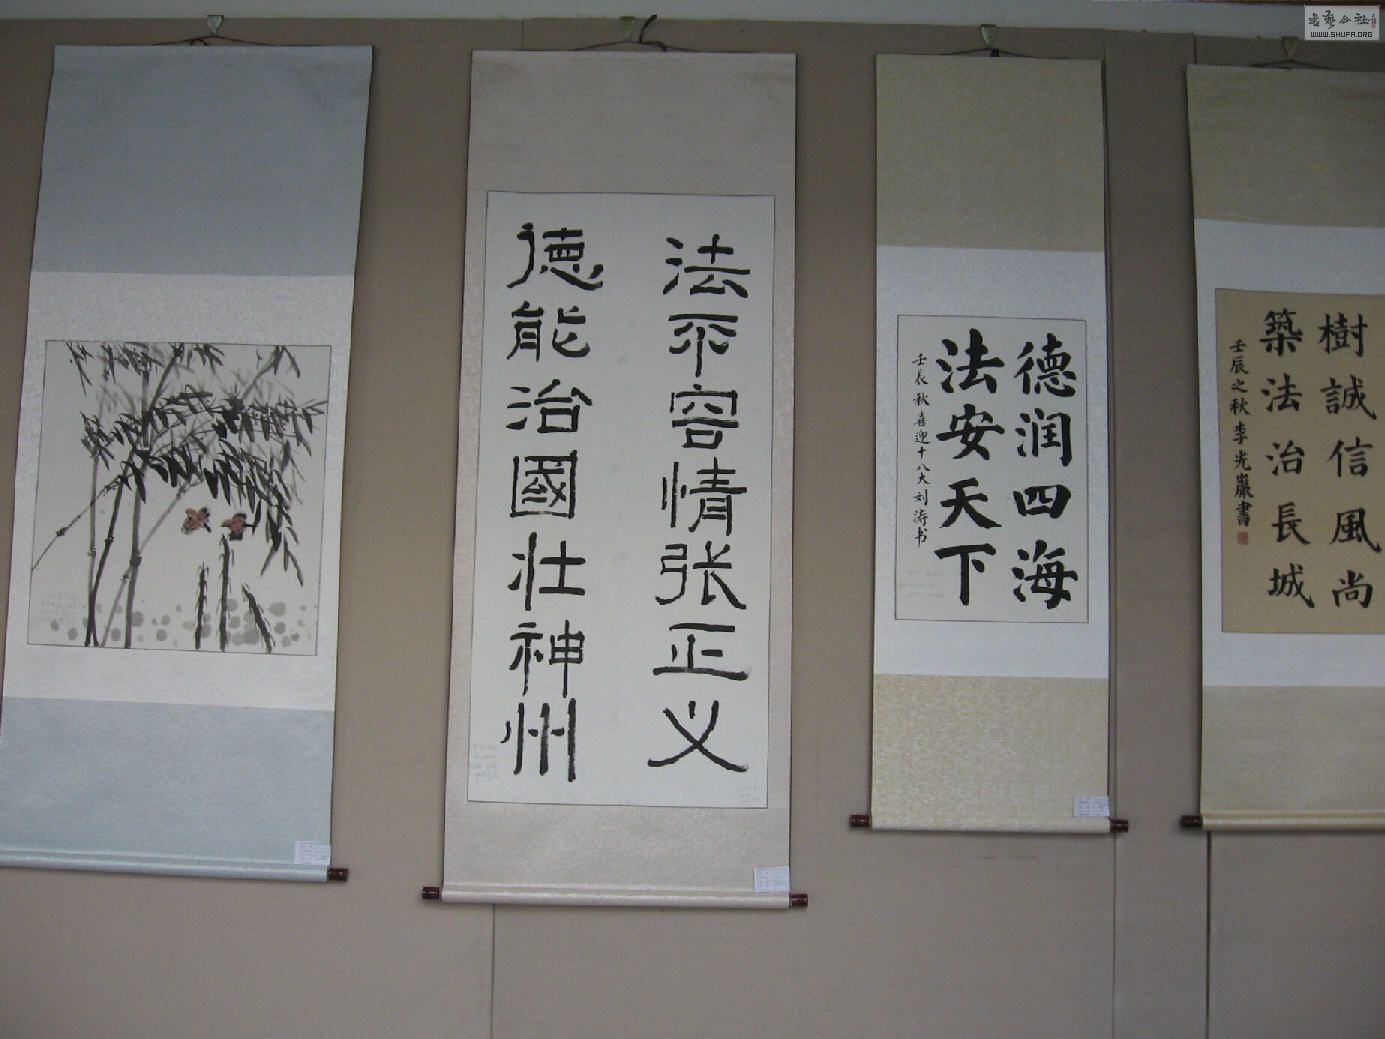 法不容情张正义
德能治國壮神州
德润四海
法安天下
壬辰秋喜迎十八大刘涛书
樹誠信風尚
築法治長城
壬辰之秋李光巖書
WWW.SHUFA.ORG